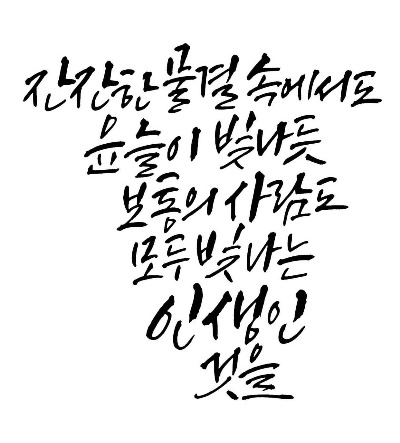 잔잔한 물결 속에서도
윤슬이 빛나듯
보통의 사람도
모두 빛나는
인생인
것을